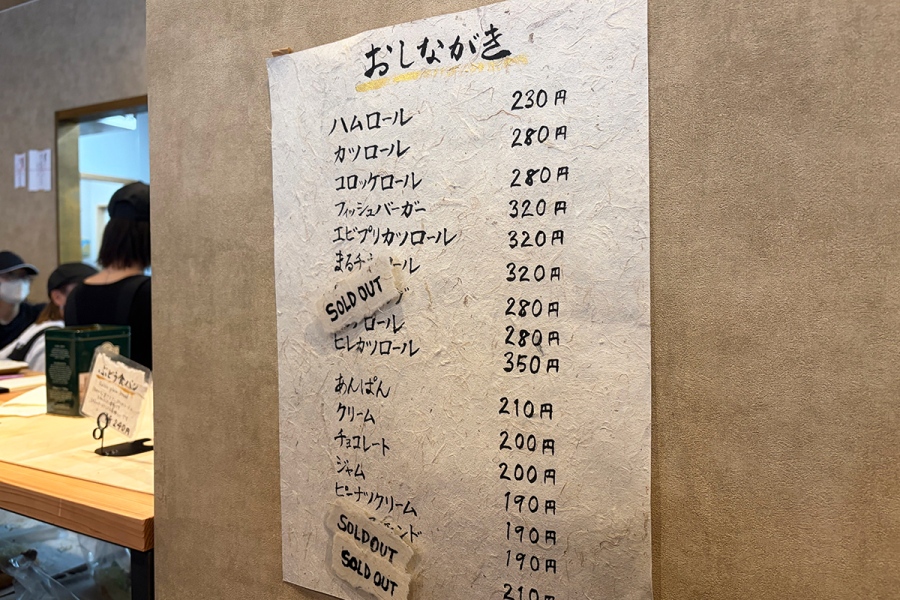 おしながき
ハムロール 230円
カツロール 280円
コロッケロール 280円
フィッシュバーガー 320円
エビプリカツロール 320円
まるチ ール 320円
SOLD OUT
280円
ロール 280円
ヒレカツロール 350円
あんぱん 210円
クリーム 200円
チョコレート 200円
ジャム 190円
ピーナツクリーム 190円
ンド 190円
SOLD OUT
SOLD OUT
210円
ぶどう食パン